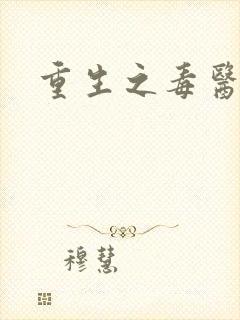 重生之毒醫
穆慧